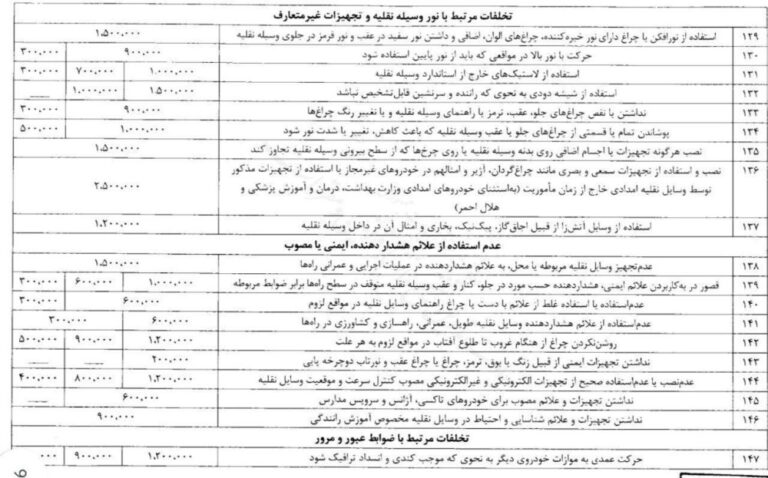 تخلفات مرتبط با نور وسیله نقلیه و تجهیزات غیرمتعارف
۱۲۹ استفاده از نورافکن یا چراغ دارای نور خیره‌کننده، چراغ‌های الوان، اضافی و داشتن نور سفید در عقب و نور قرمز در جلوی وسیله نقلیه ۱،۵۰۰،۰۰۰
۱۳۰ حرکت با نور بالا در مواقعی که باید از نور پایین استفاده شود ۹۰۰،۰۰۰ ۳۰۰،۰۰۰
۱۳۱ استفاده از لاستیک‌های خارج از استاندارد وسیله نقلیه ۱،۰۰۰،۰۰۰ ۷۰۰،۰۰۰ ۳۰۰،۰۰۰
۱۳۲ استفاده از شیشه دودی به نحوی که راننده و سرنشین قابل‌تشخیص نباشد ۱،۵۰۰،۰۰۰ ۱،۰۰۰،۰۰۰ ——
۱۳۳ نداشتن یا نقص چراغ‌های جلو، عقب، ترمز یا راهنمای وسیله نقلیه و یا تغییر رنگ چراغ‌ها ۹۰۰،۰۰۰ ۳۰۰،۰۰۰
۱۳۴ پوشاندن تمام یا قسمتی از چراغ‌های جلو یا عقب وسیله نقلیه که باعث کاهش، تغییر یا شدت نور شود ۱،۰۰۰،۰۰۰ ۵۰۰،۰۰۰
۱۳۵ نصب هرگونه تجهیزات یا اجسام اضافی روی بدنه وسیله نقلیه یا روی چرخ‌ها که از سطح بیرونی وسیله نقلیه تجاوز کند ۱،۵۰۰،۰۰۰
۱۳۶ نصب و استفاده از تجهیزات سمعی و بصری مانند چراغ‌گردان، آژیر و امثالهم در خودروهای غیرمجاز یا استفاده از تجهیزات مذکور
توسط وسایل نقلیه امدادی خارج از زمان مأموریت (به‌استثنای خودروهای امدادی وزارت بهداشت، درمان و آموزش پزشکی و ۲،۵۰۰،۰۰۰
هلال احمر)
۱۳۷ استفاده از وسایل آتش‌زا از قبیل اجاق‌گاز، پیک‌نیک، بخاری و امثال آن در داخل وسیله نقلیه ۱،۲۰۰،۰۰۰
عدم استفاده از علائم هشدار دهنده، ایمنی یا مصوب
۱۳۸ عدم‌تجهیز وسایل نقلیه مربوطه یا محل، به علائم هشداردهنده در عملیات اجرایی و عمرانی راه‌ها ۱،۵۰۰،۰۰۰
۱۳۹ قصور در به‌کاربردن علائم ایمنی، هشداردهنده حسب مورد در جلو، کنار و عقب وسیله نقلیه متوقف در سطح راه‌ها برابر ضوابط مربوطه ۱،۰۰۰،۰۰۰ ۶۰۰،۰۰۰ ۳۰۰،۰۰۰
۱۴۰ عدم‌استفاده یا استفاده غلط از علائم با دست یا چراغ راهنمای وسایل نقلیه در مواقع لزوم ۶۰۰،۰۰۰ ۳۰۰،۰۰۰
۱۴۱ عدم‌استفاده از علائم هشداردهنده وسایل نقلیه طویل، عمرانی، راهسازی و کشاورزی در راه‌ها ۶۰۰،۰۰۰ ۳۰۰،۰۰۰
۱۴۲ روشن‌نکردن چراغ از هنگام غروب تا طلوع آفتاب در مواقع لزوم به هر علت ۱،۲۰۰،۰۰۰ ۹۰۰،۰۰۰ ۵۰۰،۰۰۰
۱۴۳ نداشتن تجهیزات ایمنی از قبیل زنگ یا بوق، ترمز، چراغ یا چراغ عقب و نورتاب دوچرخه پایی ۲۰۰،۰۰۰ —— ——
۱۴۴ عدم‌نصب یا عدم‌استفاده صحیح از تجهیزات الکترونیکی و غیرالکترونیکی مصوب کنترل سرعت و موقعیت وسایل نقلیه ۱،۲۰۰،۰۰۰ ۸۰۰،۰۰۰ ۴۰۰،۰۰۰
۱۴۵ نداشتن تجهیزات و علائم مصوب برای خودروهای تاکسی، آژانس و سرویس مدارس ۶۰۰،۰۰۰
۱۴۶ نداشتن تجهیزات و علائم شناسایی و احتیاط در وسایل نقلیه مخصوص آموزش رانندگی ۹۰۰،۰۰۰
تخلفات مرتبط با ضوابط عبور و مرور
۱۴۷ حرکت عمدی به موازات خودروی دیگر به نحوی که موجب کندی و انسداد ترافیک شود ۱،۲۰۰،۰۰۰ ۹۰۰،۰۰۰